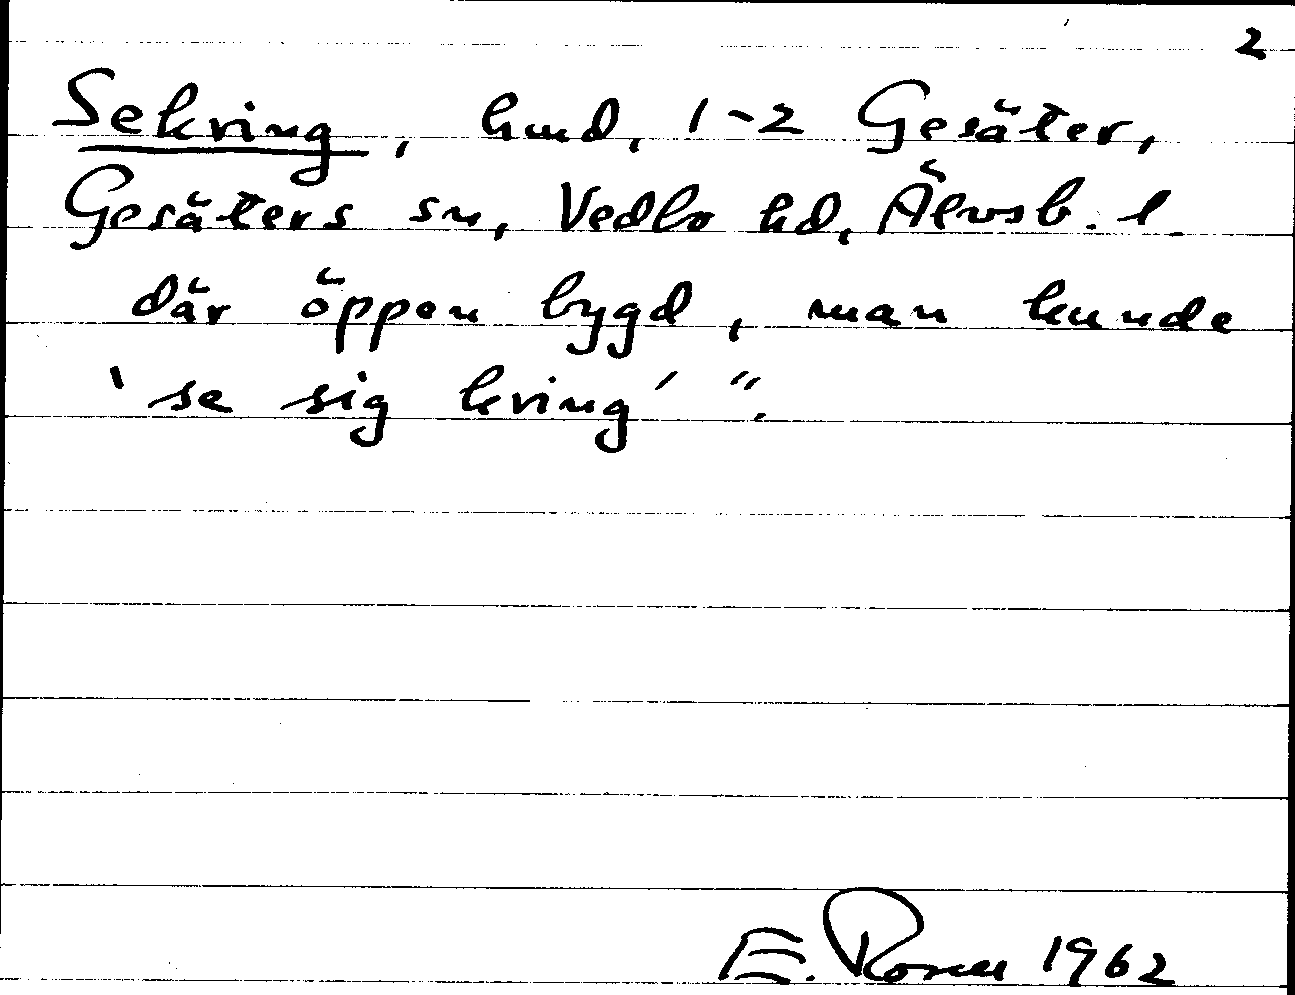 2
Sekring, hmd, 1-2 Gesäter,
Gesäters sn, Vedbo hd, Älvsb. l.
där öppen bygd, man kunde
'se sig kring' ".
E. 1962